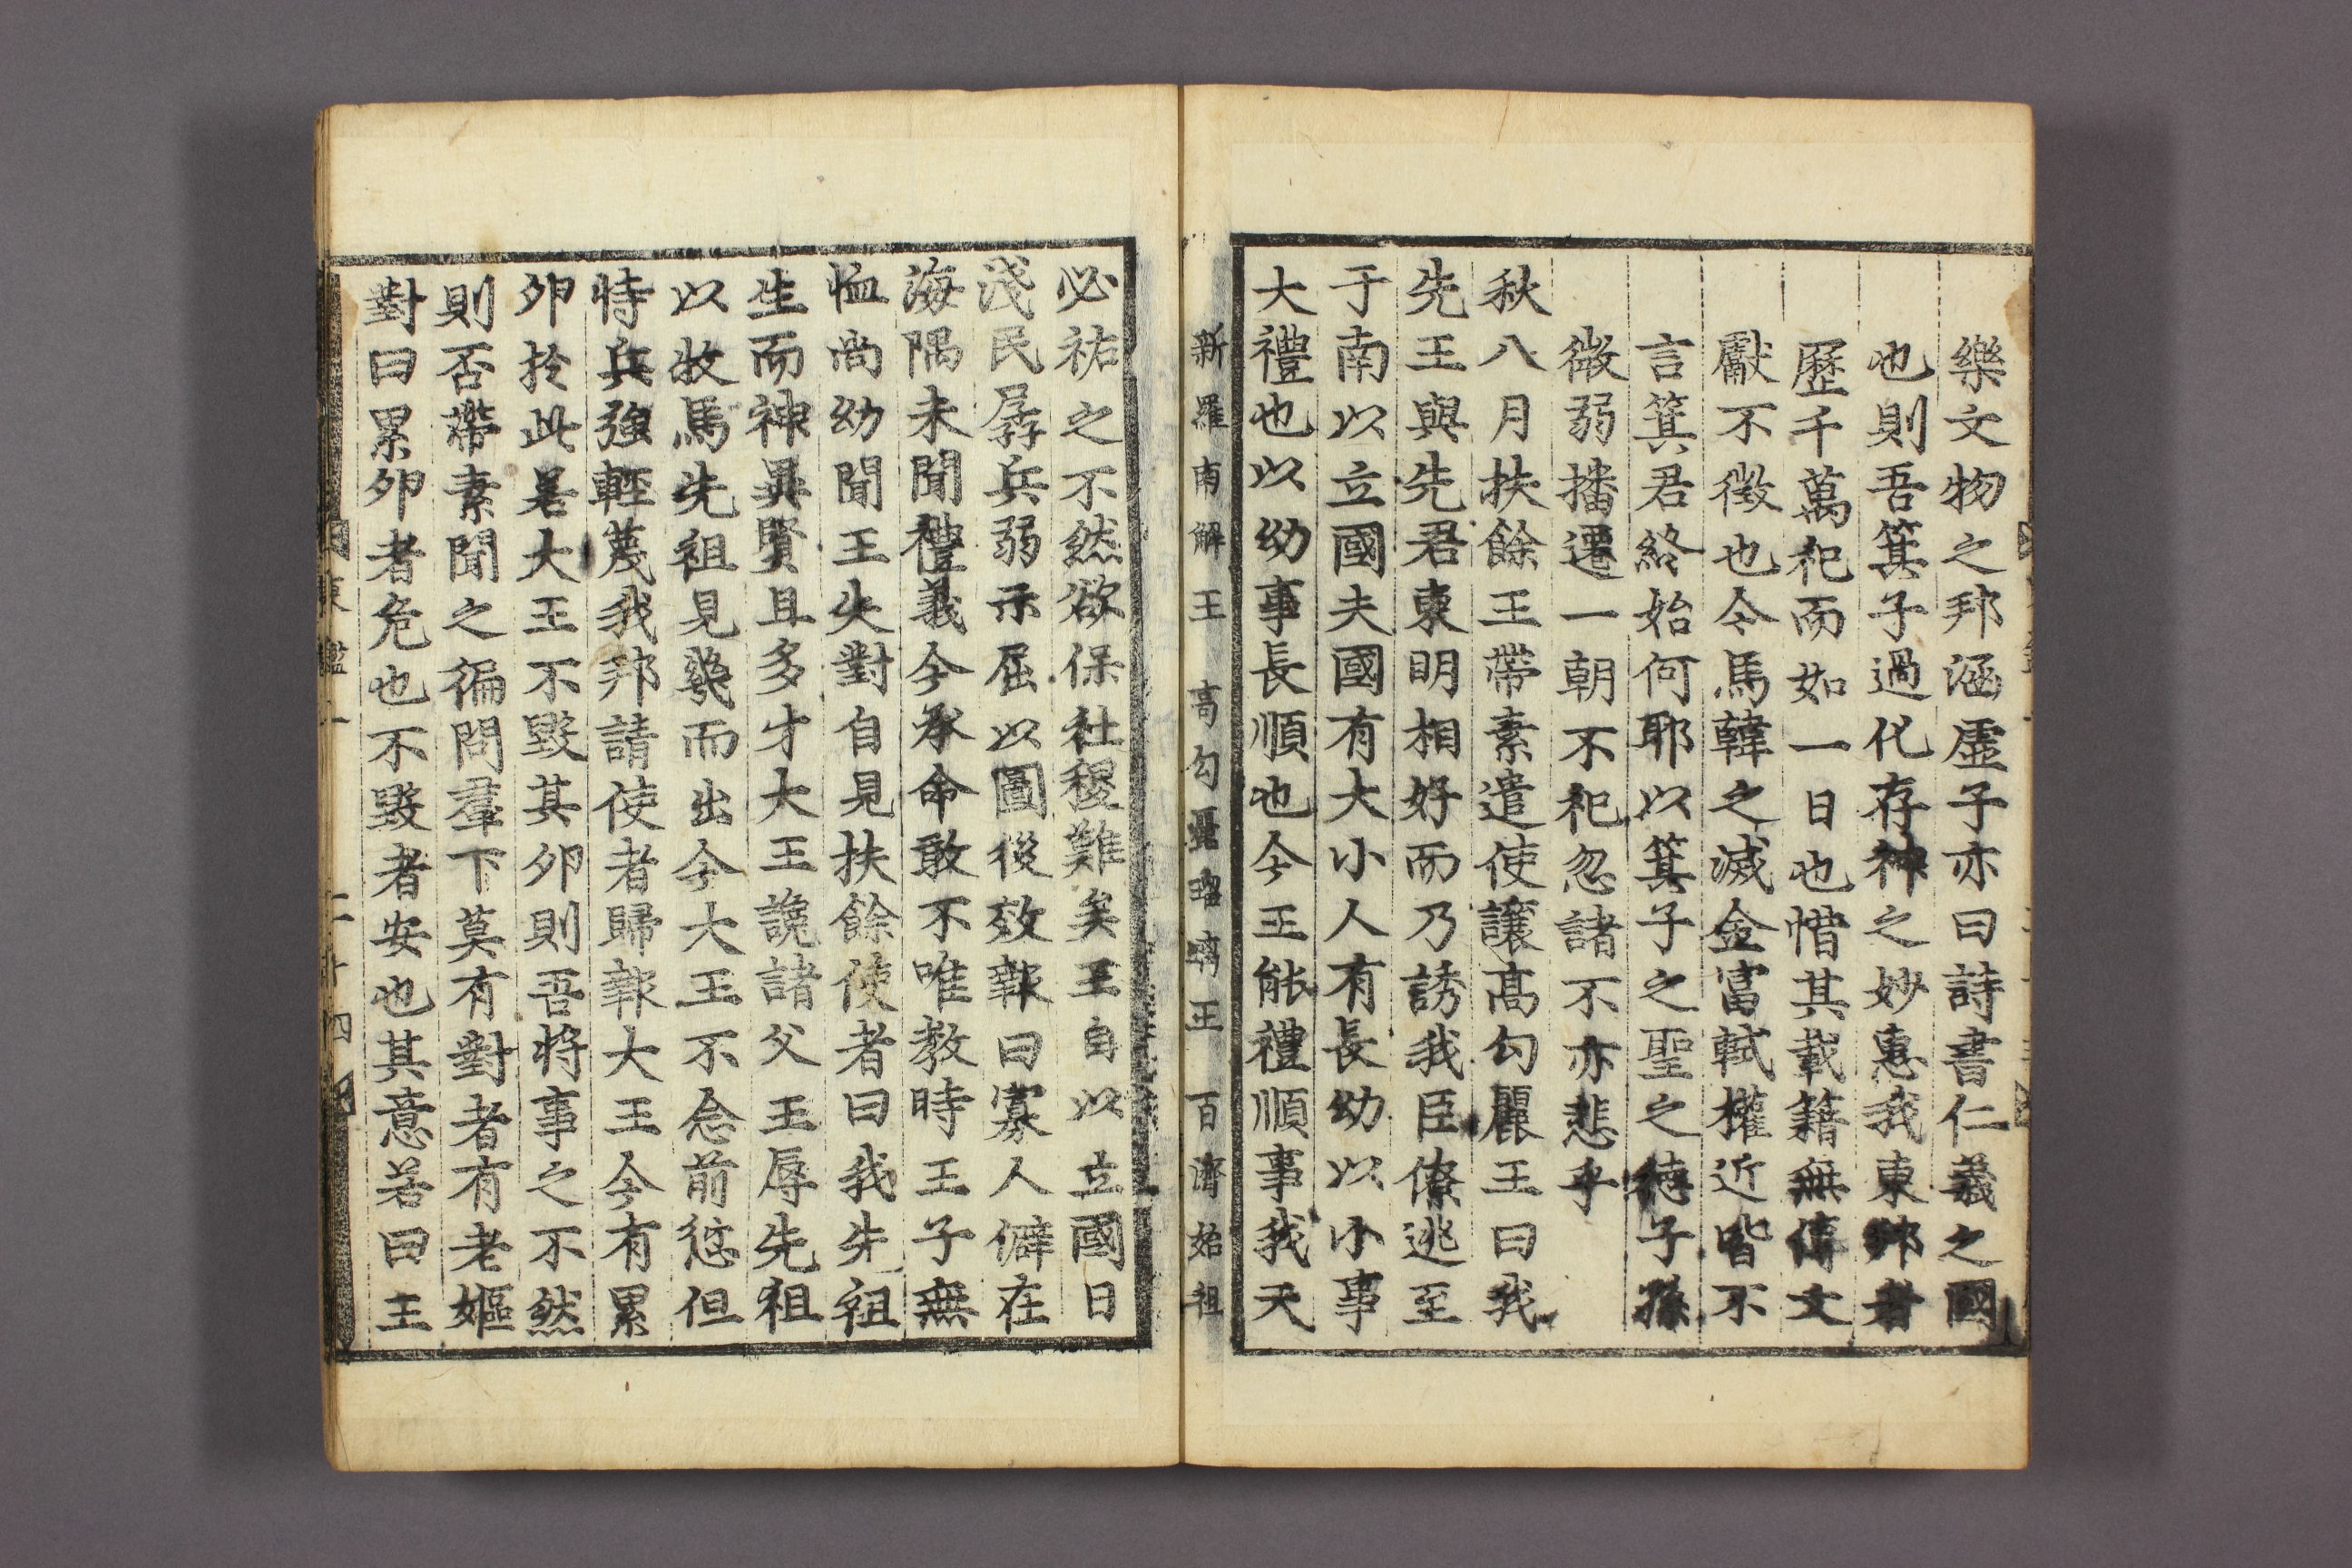 樂文物之邦涵虛子亦曰詩書仁義之國
也則吾箕子過化存神之妙惠我東邦者
歷千萬祀而如一日也惜其載籍無傳文
獻不徵也今馬韓之滅金富軾權近皆不
言箕君終始何耶以箕子之聖之德子孫
微弱播遷一朝不祀忽諸不亦悲乎
秋八月扶餘王帶素遣使讓高勾麗王曰我
先王與先君東明相好而乃誘我臣僚逃至
于南以立國夫國有大小人有長幼以小事
大禮也以幼事長順也今王能禮順事我天
新羅南解王 高勾麗瑠璃王 百濟始祖
必祐之不然欲保社稷難矣王自以立國日
淺民孱兵弱示屈以圖後效報曰寡人僻在
海隅未聞禮義今承命敢不唯教時王子無
恤尚幼聞王失對自見扶餘使者曰我先祖
生而神異賢且多才大王譖諸父王辱先祖
以牧馬先祖見幾而出今大王不念前愆但
恃兵強輕蔑我邦請使者歸報大王今有累
卵於此若大王不毀其卵則吾將事之不然
則否帶素聞之徧問羣下莫有對者有老嫗
對曰累卵者危也不毀者安也其意若曰王
東鑑一 二十四